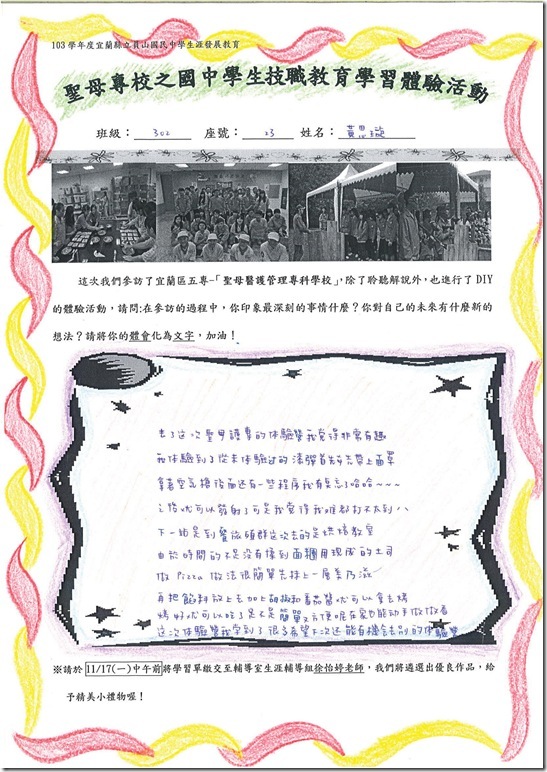 103學年度宜蘭縣立員山國民中學生涯發展教育
聖母專校之國中學生技職教育學習體驗活動
班級：302 座號：23 姓名：黃思璇
這次我們參訪了宜蘭區五專-「聖母醫護管理專科學校」，除了聆聽解說外，也進行了 DIY
的體驗活動，請問:在參訪的過程中，你印象最深刻的事情什麼？你對自己的未來有什麼新的
想法？請將你的體會化為文字，加油！
去了這次聖母護專的体驗營我覺得非常有趣
我体驗到了從未体驗过的漆彈首先先帶上面罩
拿著空氣槍後面还有一些程序我有點忘了哈哈~~~
之後就可以射了可是我覺得我誰都打不太到ˊˋ
下一站是到餐旅碩群这次去的是烘焙教室
由於時間的不足沒有揉到面糰用現成的土司
做 Pizza 做法很簡單先抹上一層美乃滋
再把餡料放上去加上胡椒和蕃茄醬就可以拿去烤
烤好就可以吃了是不是簡單又方便呢在家也能动手做做看
这次体驗營我学到了很多希望下次还能有機会去別的体驗營
※請於 11/17(一)中午前將學習單繳交至輔導室生涯輔導組徐怡婷老師，我們將遴選出優良作品，給
予精美小禮物喔！